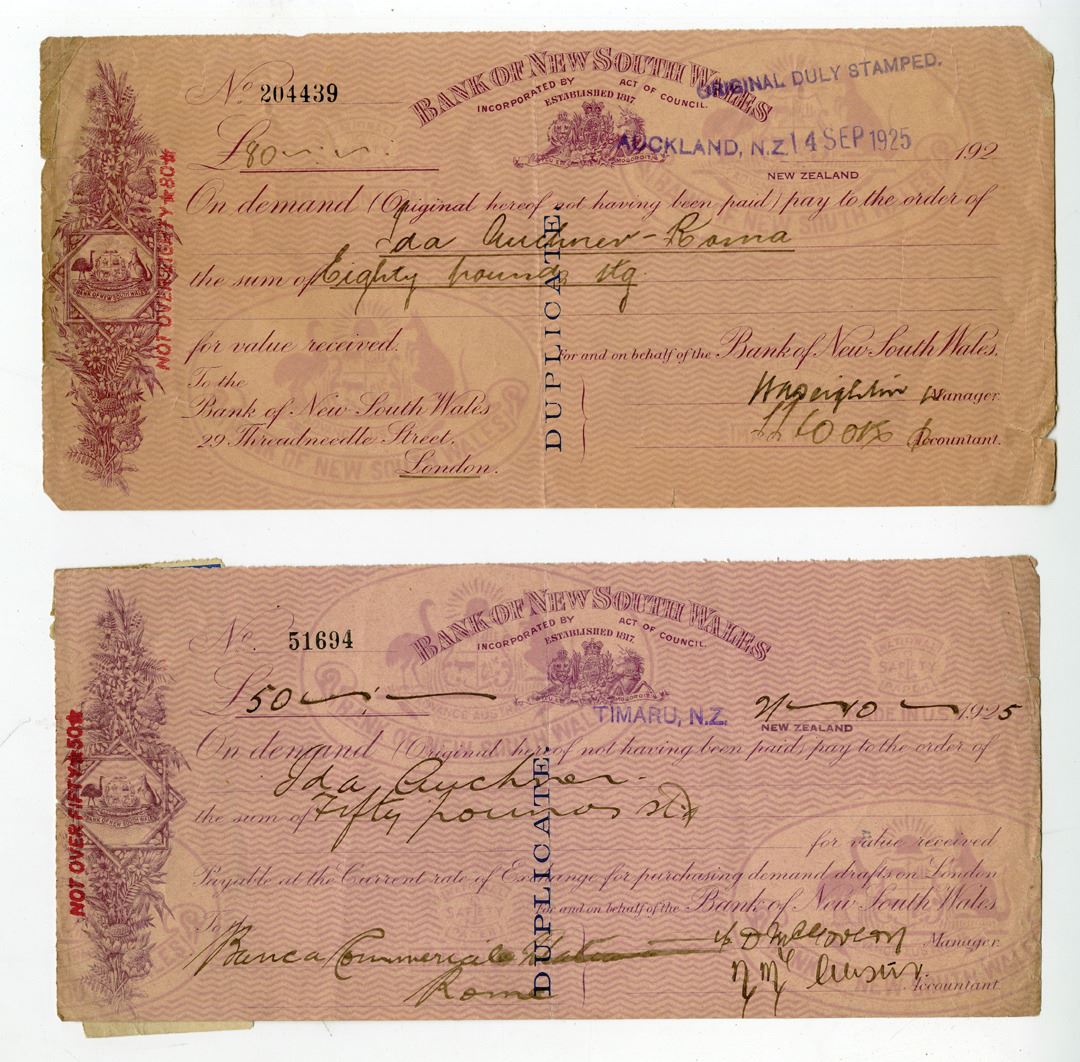 No 204439
BANK OF NEW SOUTH WALES
INCORPORATED BY ACT OF COUNCIL.
ESTABLISHED 1817
ORIGINAL DULY STAMPED.
£80
AUCKLAND, N.Z. 14 SEP 1925 192
NEW ZEALAND
On demand (Original hereof not having been paid) pay to the order of
Ida Auchner - Roma
the sum of Eighty pounds stg
for value received.
For and on behalf of the Bank of New South Wales.
To the
Bank of New South Wales
29 Threadneedle Street,
London.
Manager
Cook Accountant.
DUPLICATE.
NOT OVER EIGHTY £80
BANK OF NEW SOUTH WALES
No 51694
BANK OF NEW SOUTH WALES
INCORPORATED BY ACT OF COUNCIL.
ESTABLISHED 1817.
£50
TIMARU, N.Z. 2/ 10 1925
NEW ZEALAND
On demand (Original hereof not having been paid) pay to the order of
Ida Auchner
the sum of Fifty pounds stg
for value received
Payable at the Current rate of Exchange for purchasing demand drafts on London
For and on behalf of the Bank of New South Wales
To
Banca Commerciale Italiana
Rome
Manager
Accountant
DUPLICATE.
NOT OVER FIFTY £50
BANK OF NEW SOUTH WALES